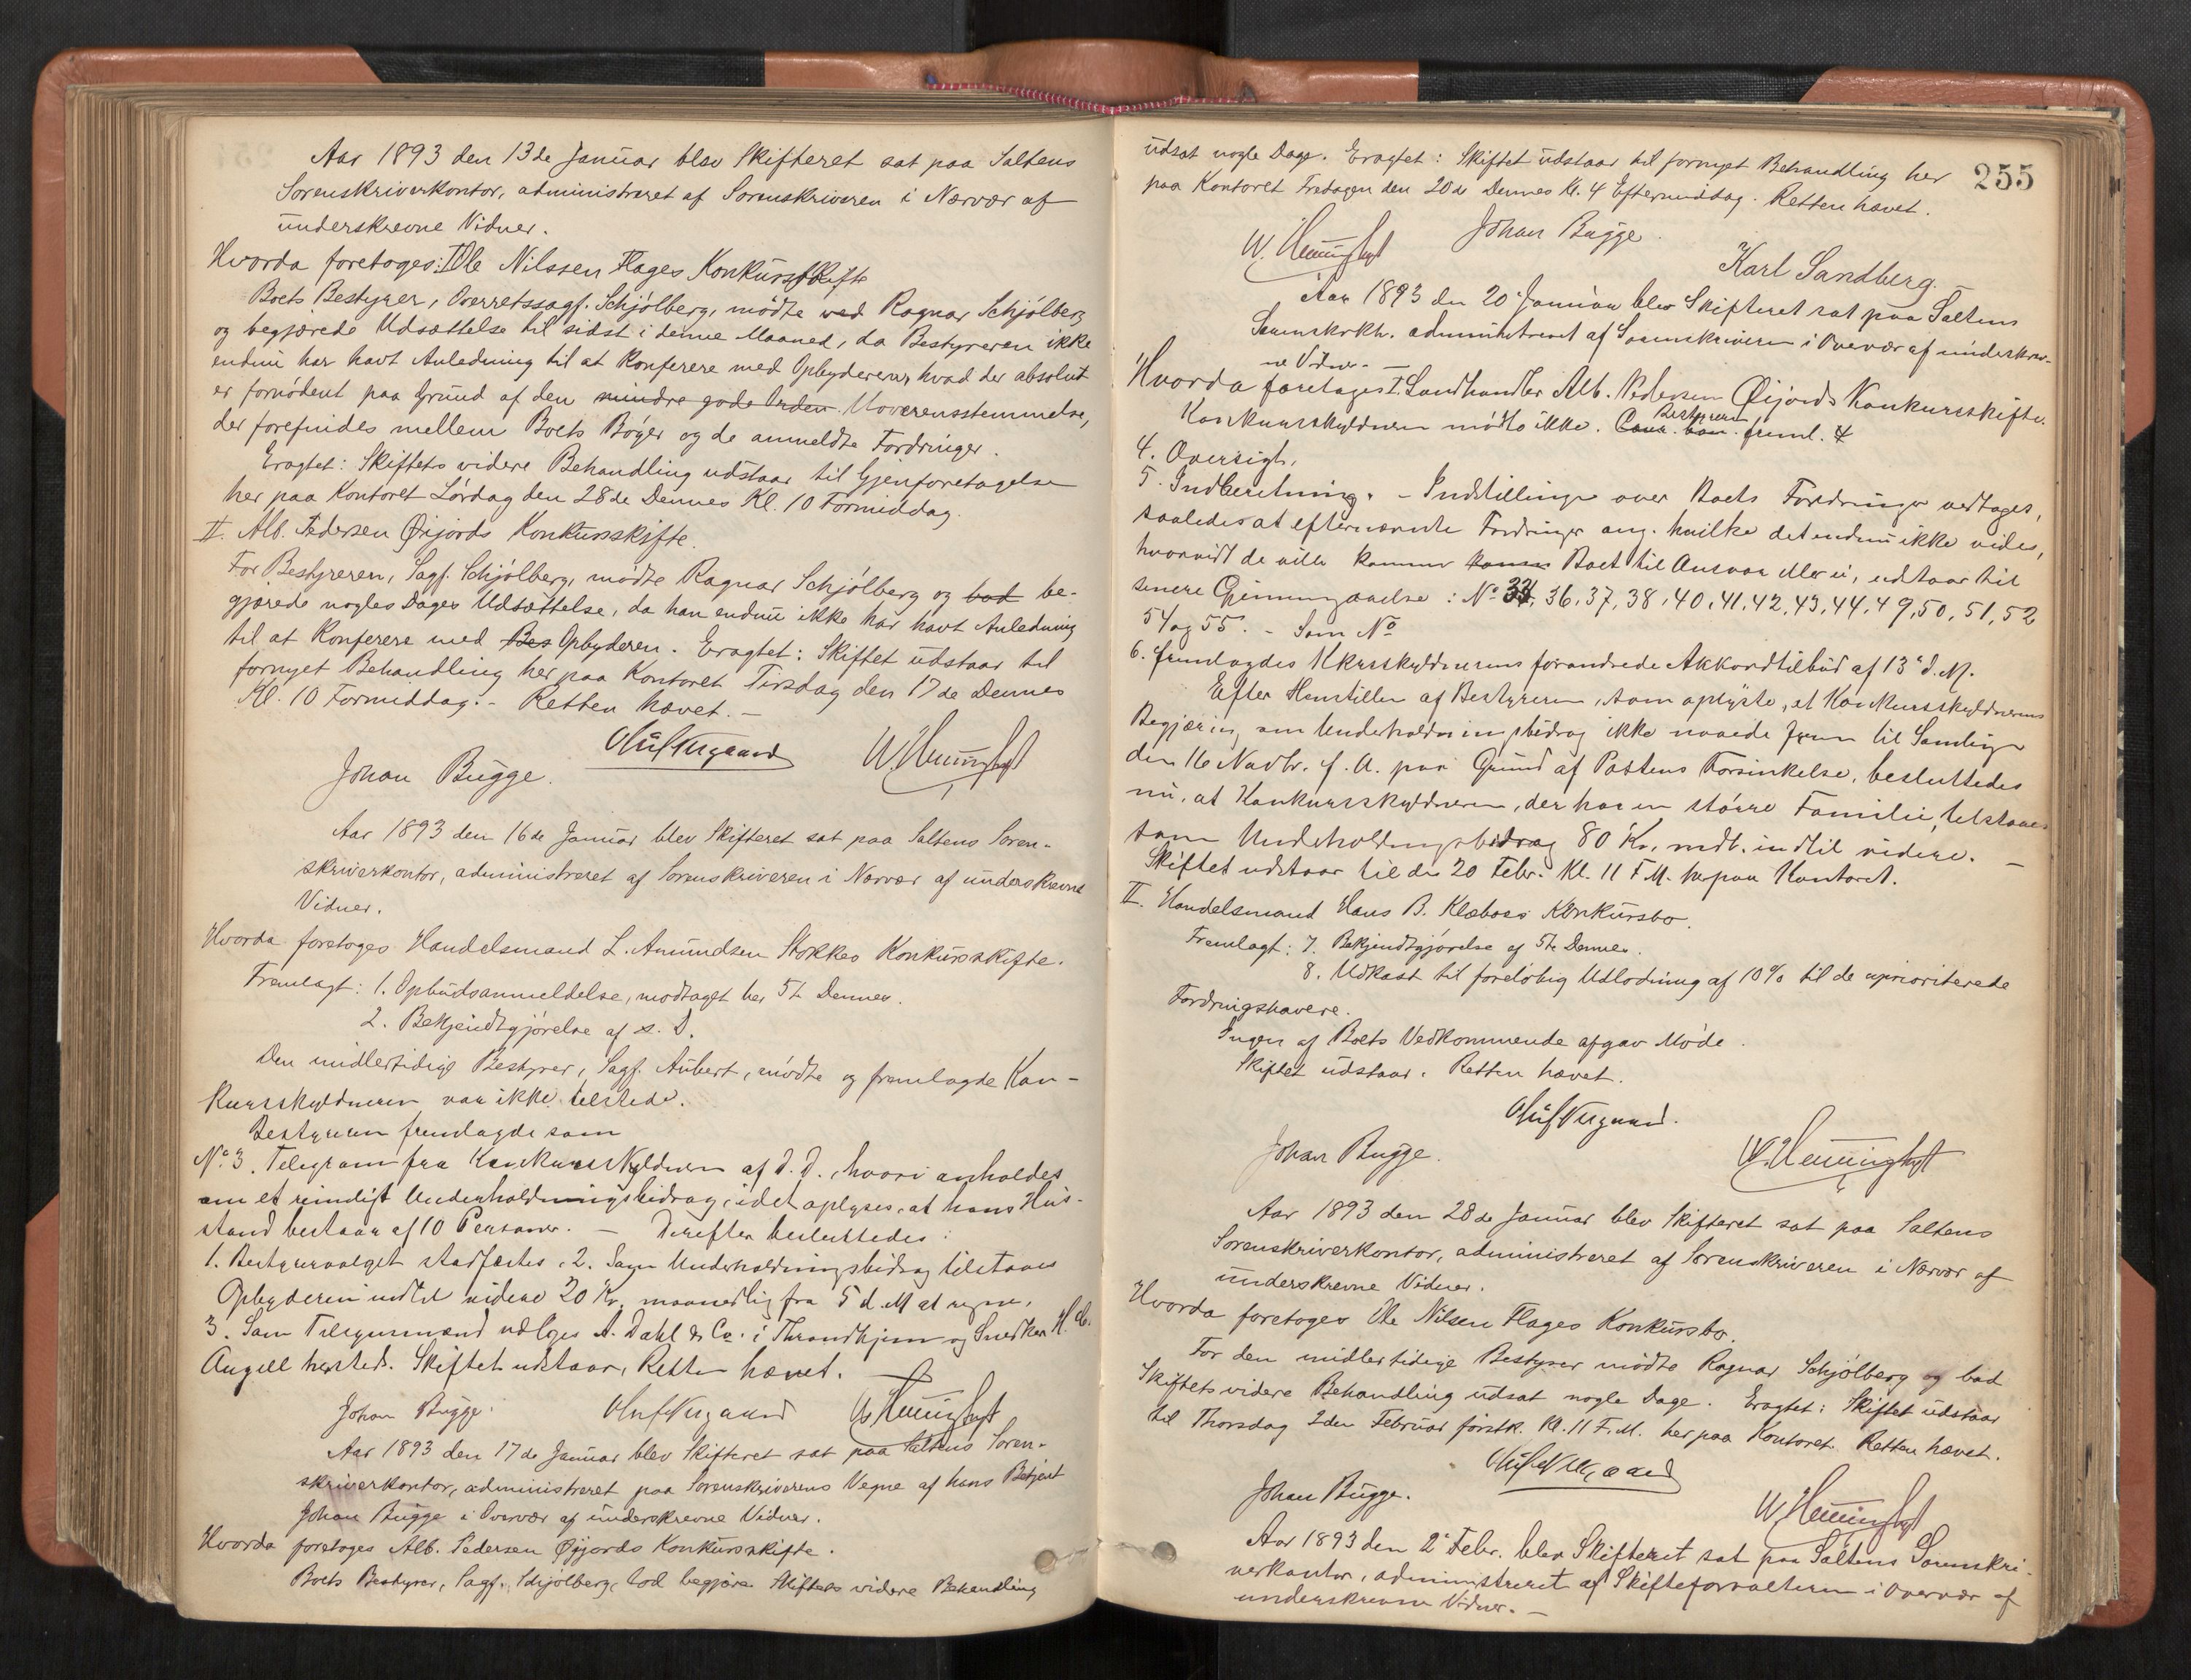 Aar 1893 den 13de Januar blev Skifteret sat paa Saltens
Sorenskriverkontor, administreret af Sorenskriveren i Nærvær af
underskrevne Vidner.
Hvorda foretoges: I Ole Nilssen Flages Konkursskifte
Boets Bestyrer, Overretssagf. Schjølberg, mødte ved Ragnar Schjølberg
og begjærede Udsættelse til sidst i denne Maaned, da Bestyreren ikke
endnu har havt Anledning til at konferere med Opbyderen, hvad der absolut
er fornødent paa Grund af den mindre gode Orden Uoverensstemmelse,
der forefindes mellem Boets Bøger og de anmeldte Fordringer.
Eragtet: Skiftets videre Behandling udstaar til Gjenforetagelse
her paa Kontoret Lørdag den 28de Dennes Kl. 10 Formiddag.
II. Alb. Pedersen Øijords Konkursskifte.
For Bestyreren, Sagf. Schjølberg, mødte Ragnar Schjølberg og bad be-
gjærede nogles Dages Udsættelse, da han endnu ikke har havt Anledning
til at konferere med Bes Opbyderen. Eragtet: Skiftet udstaar til
fornyet Behandling her paa Kontoret Tirsdag den 17de Dennes
Kl. 10 Formiddag. - Retten hævet. -
Johan Bugge.
Aar 1893 den 16de Januar blev Skifteret sat paa Saltens Soren-
skriverkontor, administreret af Sorenskriveren i Nærvær af underskrevne
Vidner.
Hvorda foretoges Handelsmand L. Amundsen Stokkes Konkursskifte.
Fremlagt: 1. Opbudsanmeldelse, modtaget her 5te Dennes.
2. Bekjendtgjørelse af s. D.
Den midlertidige Bestyrer, Sagf. Aubert, mødte og fremlagde Kon-
kursskyldneren var ikke tilstede.
Bestyreren fremlagde som
No 3. Telegram fra Konkursskyldneren af D. D., hvori anholdes
om et rimeligt Underholdningsbidrag, idet oplyses, at hans Hus-
stand bestaar af 10 Personer. - Derefter besluttedes:
1. Bestyrervalget stadfæstes. 2. Som Underholdningsbidrag tilstaaes
Opbyderen indtil videre 20 Kr. maanedlig fra 5 d. M at regne.
3. Som Tilsynsmænd udloges A. Dahl & Co. i Throndhjem og Snedker H.
Angell hersteds. Skiftet udstaar, Retten hævet.
Johan Bugge.
Aar 1893 den 17de Januar blev Skifteret sat paa Saltens Soren-
skriverkontor, administreret paa Sorenskriverens Vegne af hans Betjent
Johan Bugge i Overvær af underskrevne Vidner.
Hvorda foretoges Alb. Pedersen Øijords Konkursskifte.
Boets Bestyrer, Sagf. Schjølberg, lod begjære Skiftets videre Behandling
255
udsat nogle Dage. Eragtet: Skiftet udstaar til fornyet Behandling her
paa Kontoret Fredagen den 20de Dennes Kl. 4 Eftermiddag. Retten hævet.
Johan Bugge.
Karl Sandberg.
Aar 1893 den 20 Januar blev Skifteret sat paa Saltens
Sorenskrkt. administreret af Sorenskriveren i Overvær af underskrev-
ne Vidner. -
Hvorda foretoges I. Landhandler Alb. Pedersen Øijords Konkursskifte.
Konkursskyldneren mødte ikke. Bestyreren freml. 4
4. Oversigt,
5. Indberetning. - Indstillinger over Boets Fordringer vedtoges,
saaledes at efternævnte Fordringer ang. hvilke det endnu ikke vides,
hvorvidt de ville komme Boet til Ansvar eller ei, udstaar til
senere Gjennemgaaelse: No 34, 36, 37, 38, 40, 41, 42, 43, 44, 49, 50, 51, 52
54 og 55. - Som No
6. fremlagdes Kkursskyldnerens forandrede Akkordtilbud af 13 d. M.
Efter Henstillen af Bestyreren, som oplyste, at Konkursskyldnerens
Begjæring om Underholdningsbidrag ikke naaede frem til Samlingen
den 16 Novbr. f. A. paa Grund af Postens Forsinkelse, besluttedes
nu, at Konkursskyldneren, der har en større Familie, tilstaaes
som Underholdningsbidrag 80 Kr. mdt. indtil videre. -
Skiftet udstaar til den 20 Febr. Kl. 11 F.M. her paa Kontoret.
II. Handelsmand Hans B. Klæboes Konkursbo.
Fremlagt: 7. Bekjendtgjørelse af 5te Dennes.
8. Udkast til foreløbig Udlodning af 10% til de uprioriterede
Fordringshavere.
Ingen af Boets Vedkommende afgav Møde.
Skiftet udstaar. Retten hævet.
Johan Bugge.
Aar 1893 den 28de Januar blev Skifteret sat paa Saltens
Sorenskriverkontor, administreret af Sorenskriveren i Nærvær af
underskrevne Vidner.
Hvorda foretoges Ole Nilsen Flages Konkursbo.
For den midlertidige Bestyrer mødte Ragnar Schjølberg og bad
Skiftets videre Behandling udsat nogle Dage. Eragtet: Skiftet udstaar
til Thorsdag 2den Februar førstk. Kl. 11 F.M. her paa Kontoret. Retten hævet.
Johan Bugge.
Aar 1893 den 2 Febr. blev Skifteret sat paa Saltens Sorenskri-
verkontor, administreret af Skifteforvalteren i Overvær af
underskrevne Vidner. -